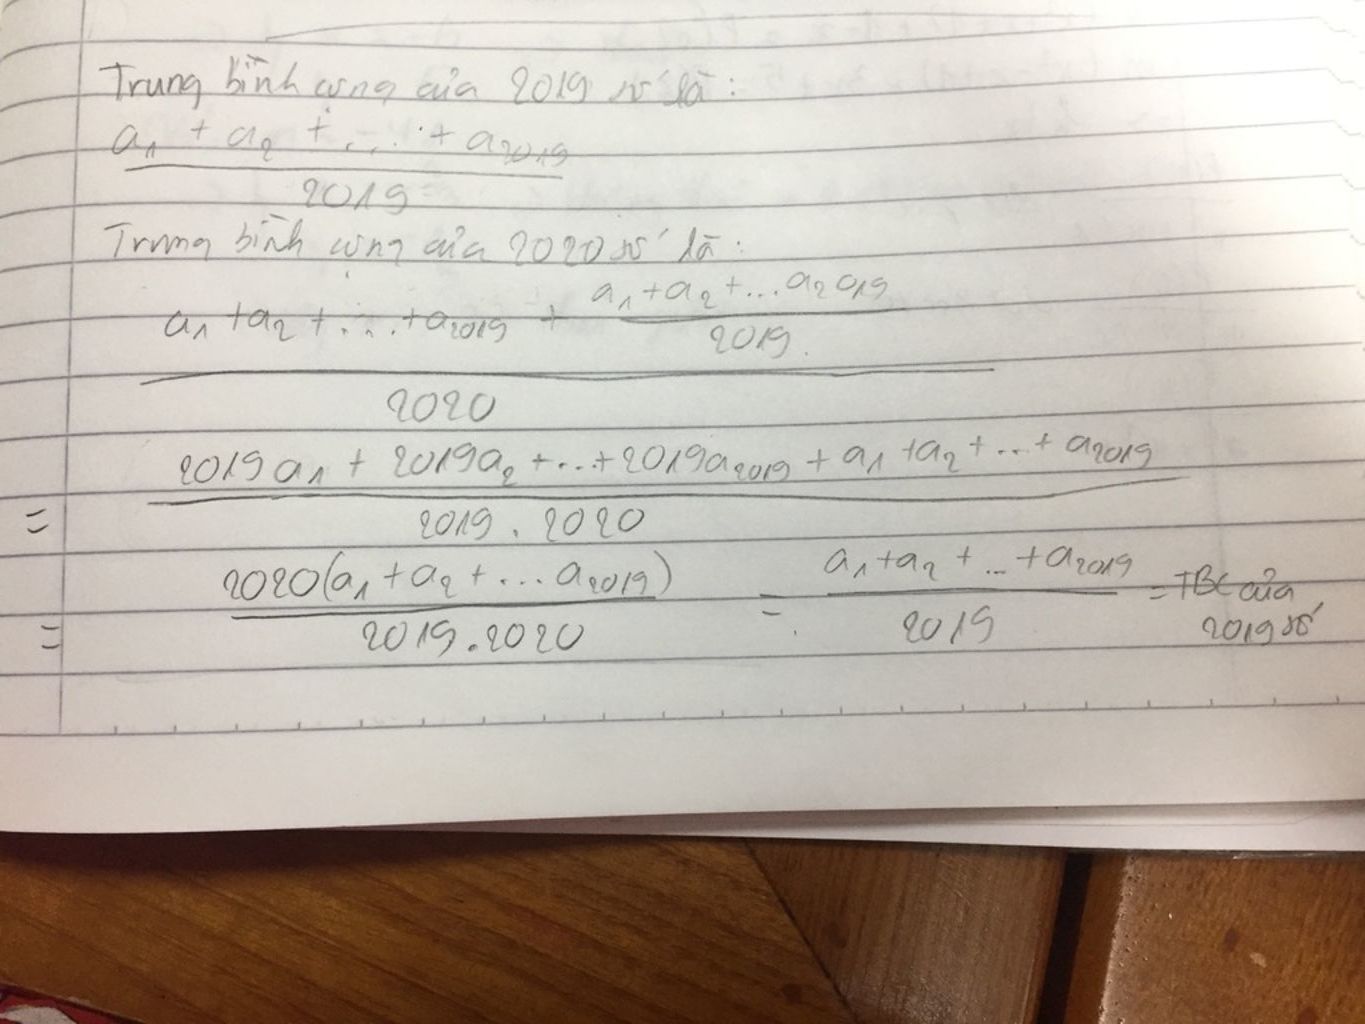 Trung bình cộng của 2019 số là:
a₁ + a₂ + ... + a₂₀₁₉
2019
Trung bình cộng của 2020 số là:
a₁ + a₂ + ... + a₂₀₁₉ + a₁ + a₂ + ... a₂₀₁₉
2019.
2020
2019a₁ + 2019a₂ + ... + 2019a₂₀₁₉ + a₁ + a₂ + ... + a₂₀₁₉
=
2019 . 2020
2020(a₁ + a₂ + ... a₂₀₁₉) = a₁ + a₂ + ... + a₂₀₁₉ = TBC của
= 2019.2020 2019 2019 số